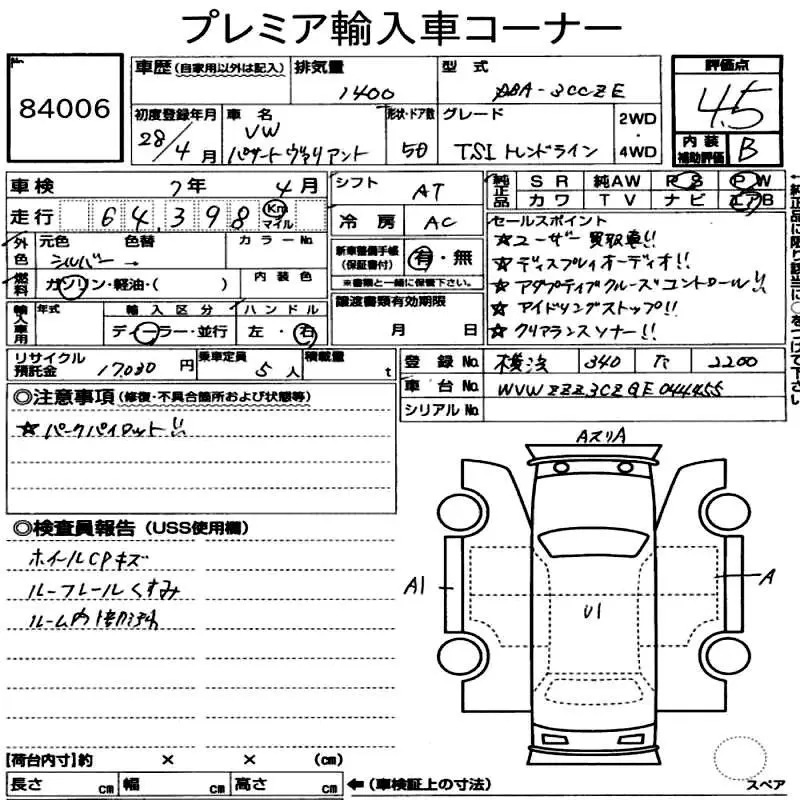 プレミア輸入車コーナー
84006
車歴(自家用以外は記入) 排気量 1400 型式 DBA-3CCZE
初度登録年月 28/4月 車名 VW パサートヴァリアント 形状・ドア数 5D グレード TSI トレンドライン 2WD・4WD
評価点 4.5
内装補助評価 B
車検 7年 4月
走行 64,398 Km マイル
シフト AT
冷房 AC
純正品 SR 純AW PS PW
カワ TV ナビ エアB
外色 元色 シルバー 色替 → カラーNo.
燃料 ガソリン・軽油・( ) 内装色
新車整備手帳(保証書付) 有・無
※書類と一緒に保管下さい。
輸入車用 年式 輸入区分 ディーラー・並行 ハンドル 左・右
譲渡書類有効期限 月 日
セールスポイント
☆ユーザー買取車!!
☆ディスプレイオーディオ!!
☆アダプティブクルーズコントロール!!
☆アイドリングストップ!!
☆クリアランスソナー!!
←純正品に限り該当に○をつけて下さい
リサイクル預託金 17,030円 乗車定員 5人 積載量 t
登録No. 横浜 340 2200
車台No. WVWZZZ3CZGE044455
シリアルNo.
◎注意事項(修復・不具合箇所および状態等)
☆パークパイロット!!
◎検査員報告(USS使用欄)
ホイールCPキズ
ルーフレールくすみ
ルーム内
AスリA
A1
A
U1
【荷台内寸】約 × × (cm)
長さ cm 幅 cm 高さ cm ←(車検証上の寸法)
スペア